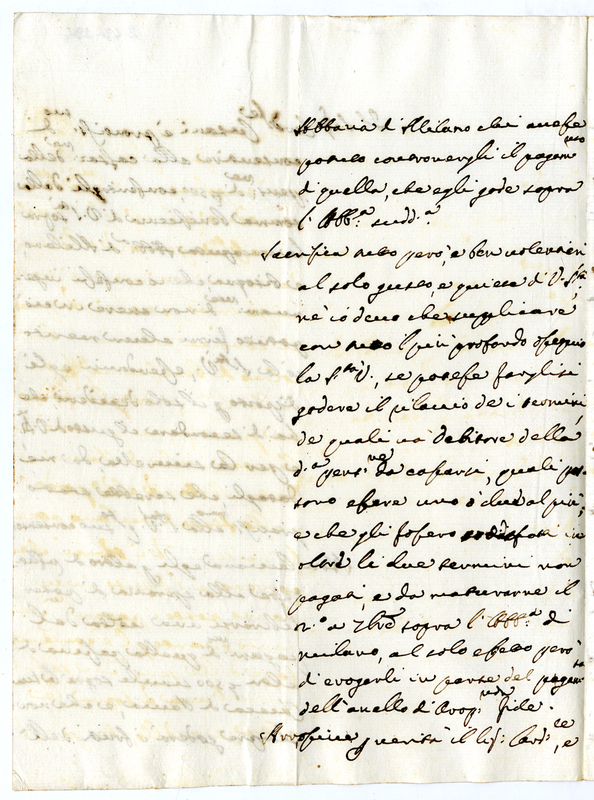 Abbazia di Milano chi avesse
potuto controvergli il pagam.to
di quella, che egli gode sopra
l'Abb.a sudd.a
Sacrifica tutto però, e ben volentieri
al solo gusto, e quiete di V. S.tà,
nè io devo che supplicare
con tutto il più profondo ossequio
la S.tà V., se potesse farglisi
godere il rilascio de i termini,
de quali và debitore della
d.a pens.ne da cassarsi, quali pos-
sono essere uno ò due al più,
e che gli fossero sodisfatti in
oltre li due termini non
pagati, e da maturarne il
2.o a 7bre sopra l'Abb.a di
Milano, al solo effetto però
di erogarli in parte del pagam.to
dell'anello di Prop.nda Fide.
Arrossisce verità il Sig. Card.le, e